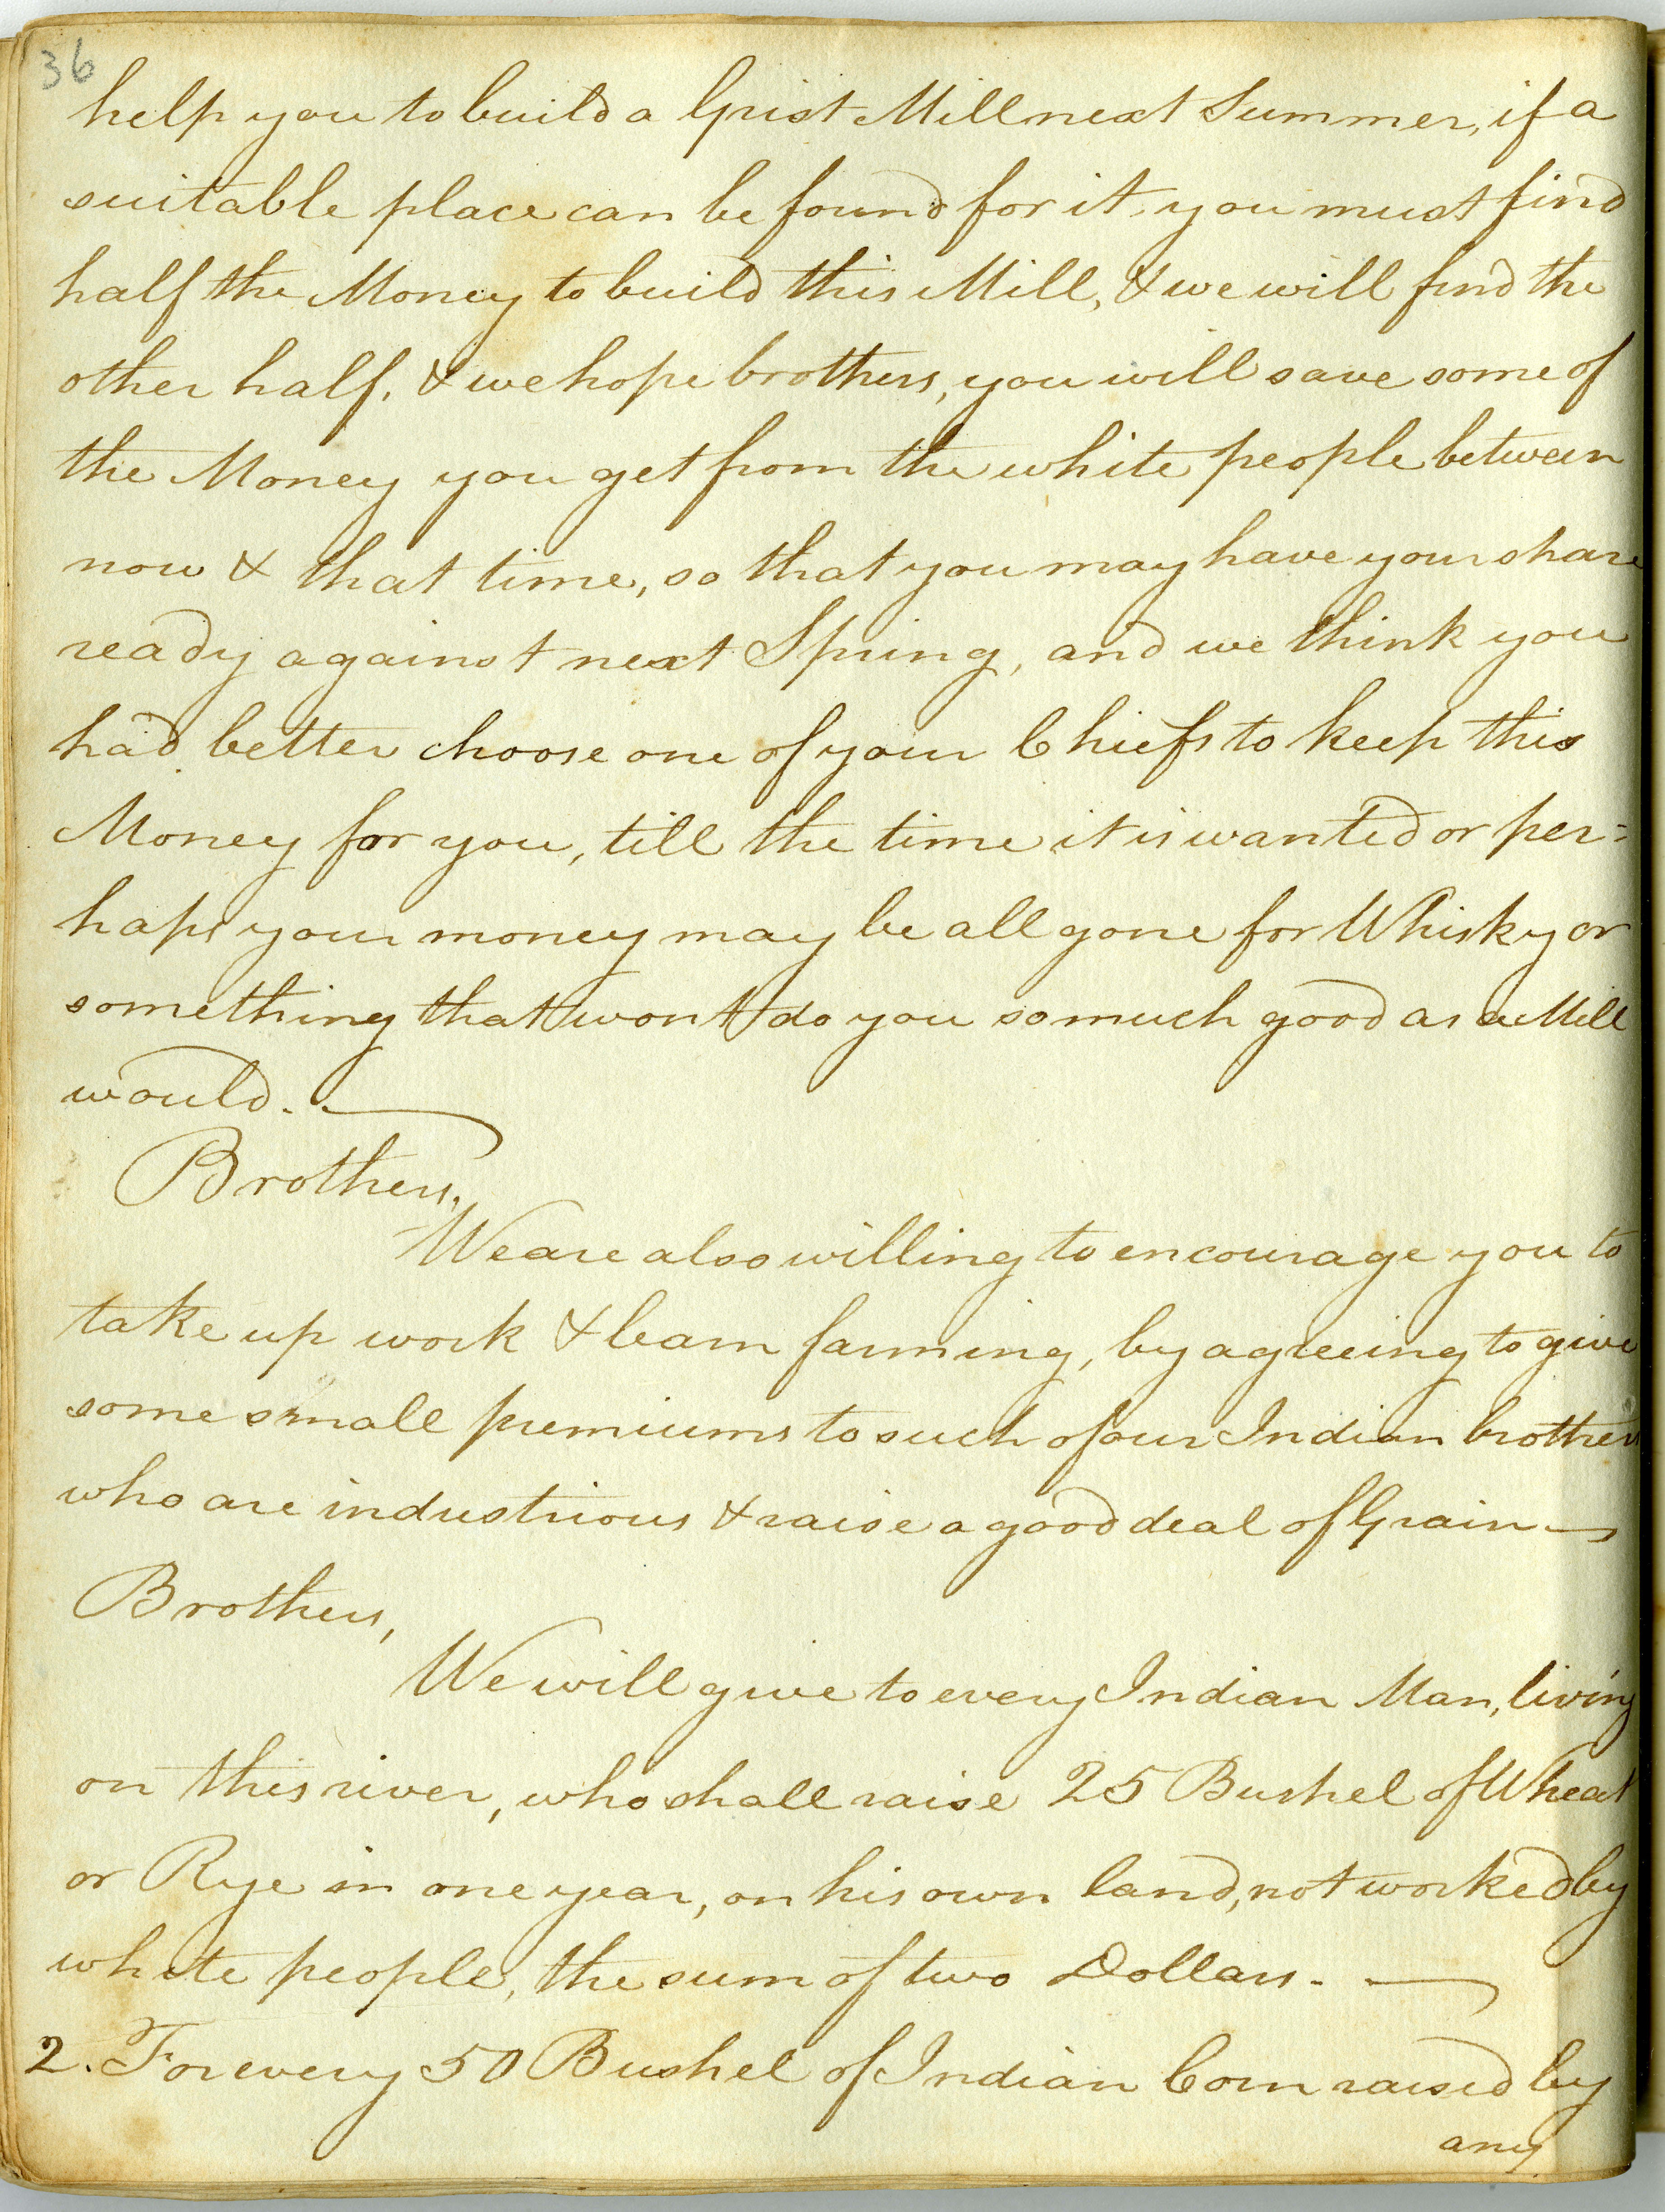 36
help you to build a Grist Mill next Summer, if a
suitable place can be found for it, you must find
half the Money to build this Mill, & we will find the
other half, & we hope brothers, you will save some of
the Money you get from the white people between
now & that time, so that you may have your share
ready against next Spring, and we think you
had better choose one of your Chiefs to keep this
Money for you, till the time it is wanted or per=
haps your money may be all gone for Whisky or
something that wont do you so much good as a Mill
would.
Brothers,
We are also willing to encourage you to
take up work & learn farming, by agreeing to give
some small premiums to such of our Indian brothers
who are industrious & raise a good deal of Grain
Brothers,
We will give to every Indian Man, living
on this river, who shall raise 25 Bushel of Wheat
or Rye in one year, on his own land, not worked by
white people, the sum of two Dollars.
2. For every 50 Bushel of Indian Corn raised by
any